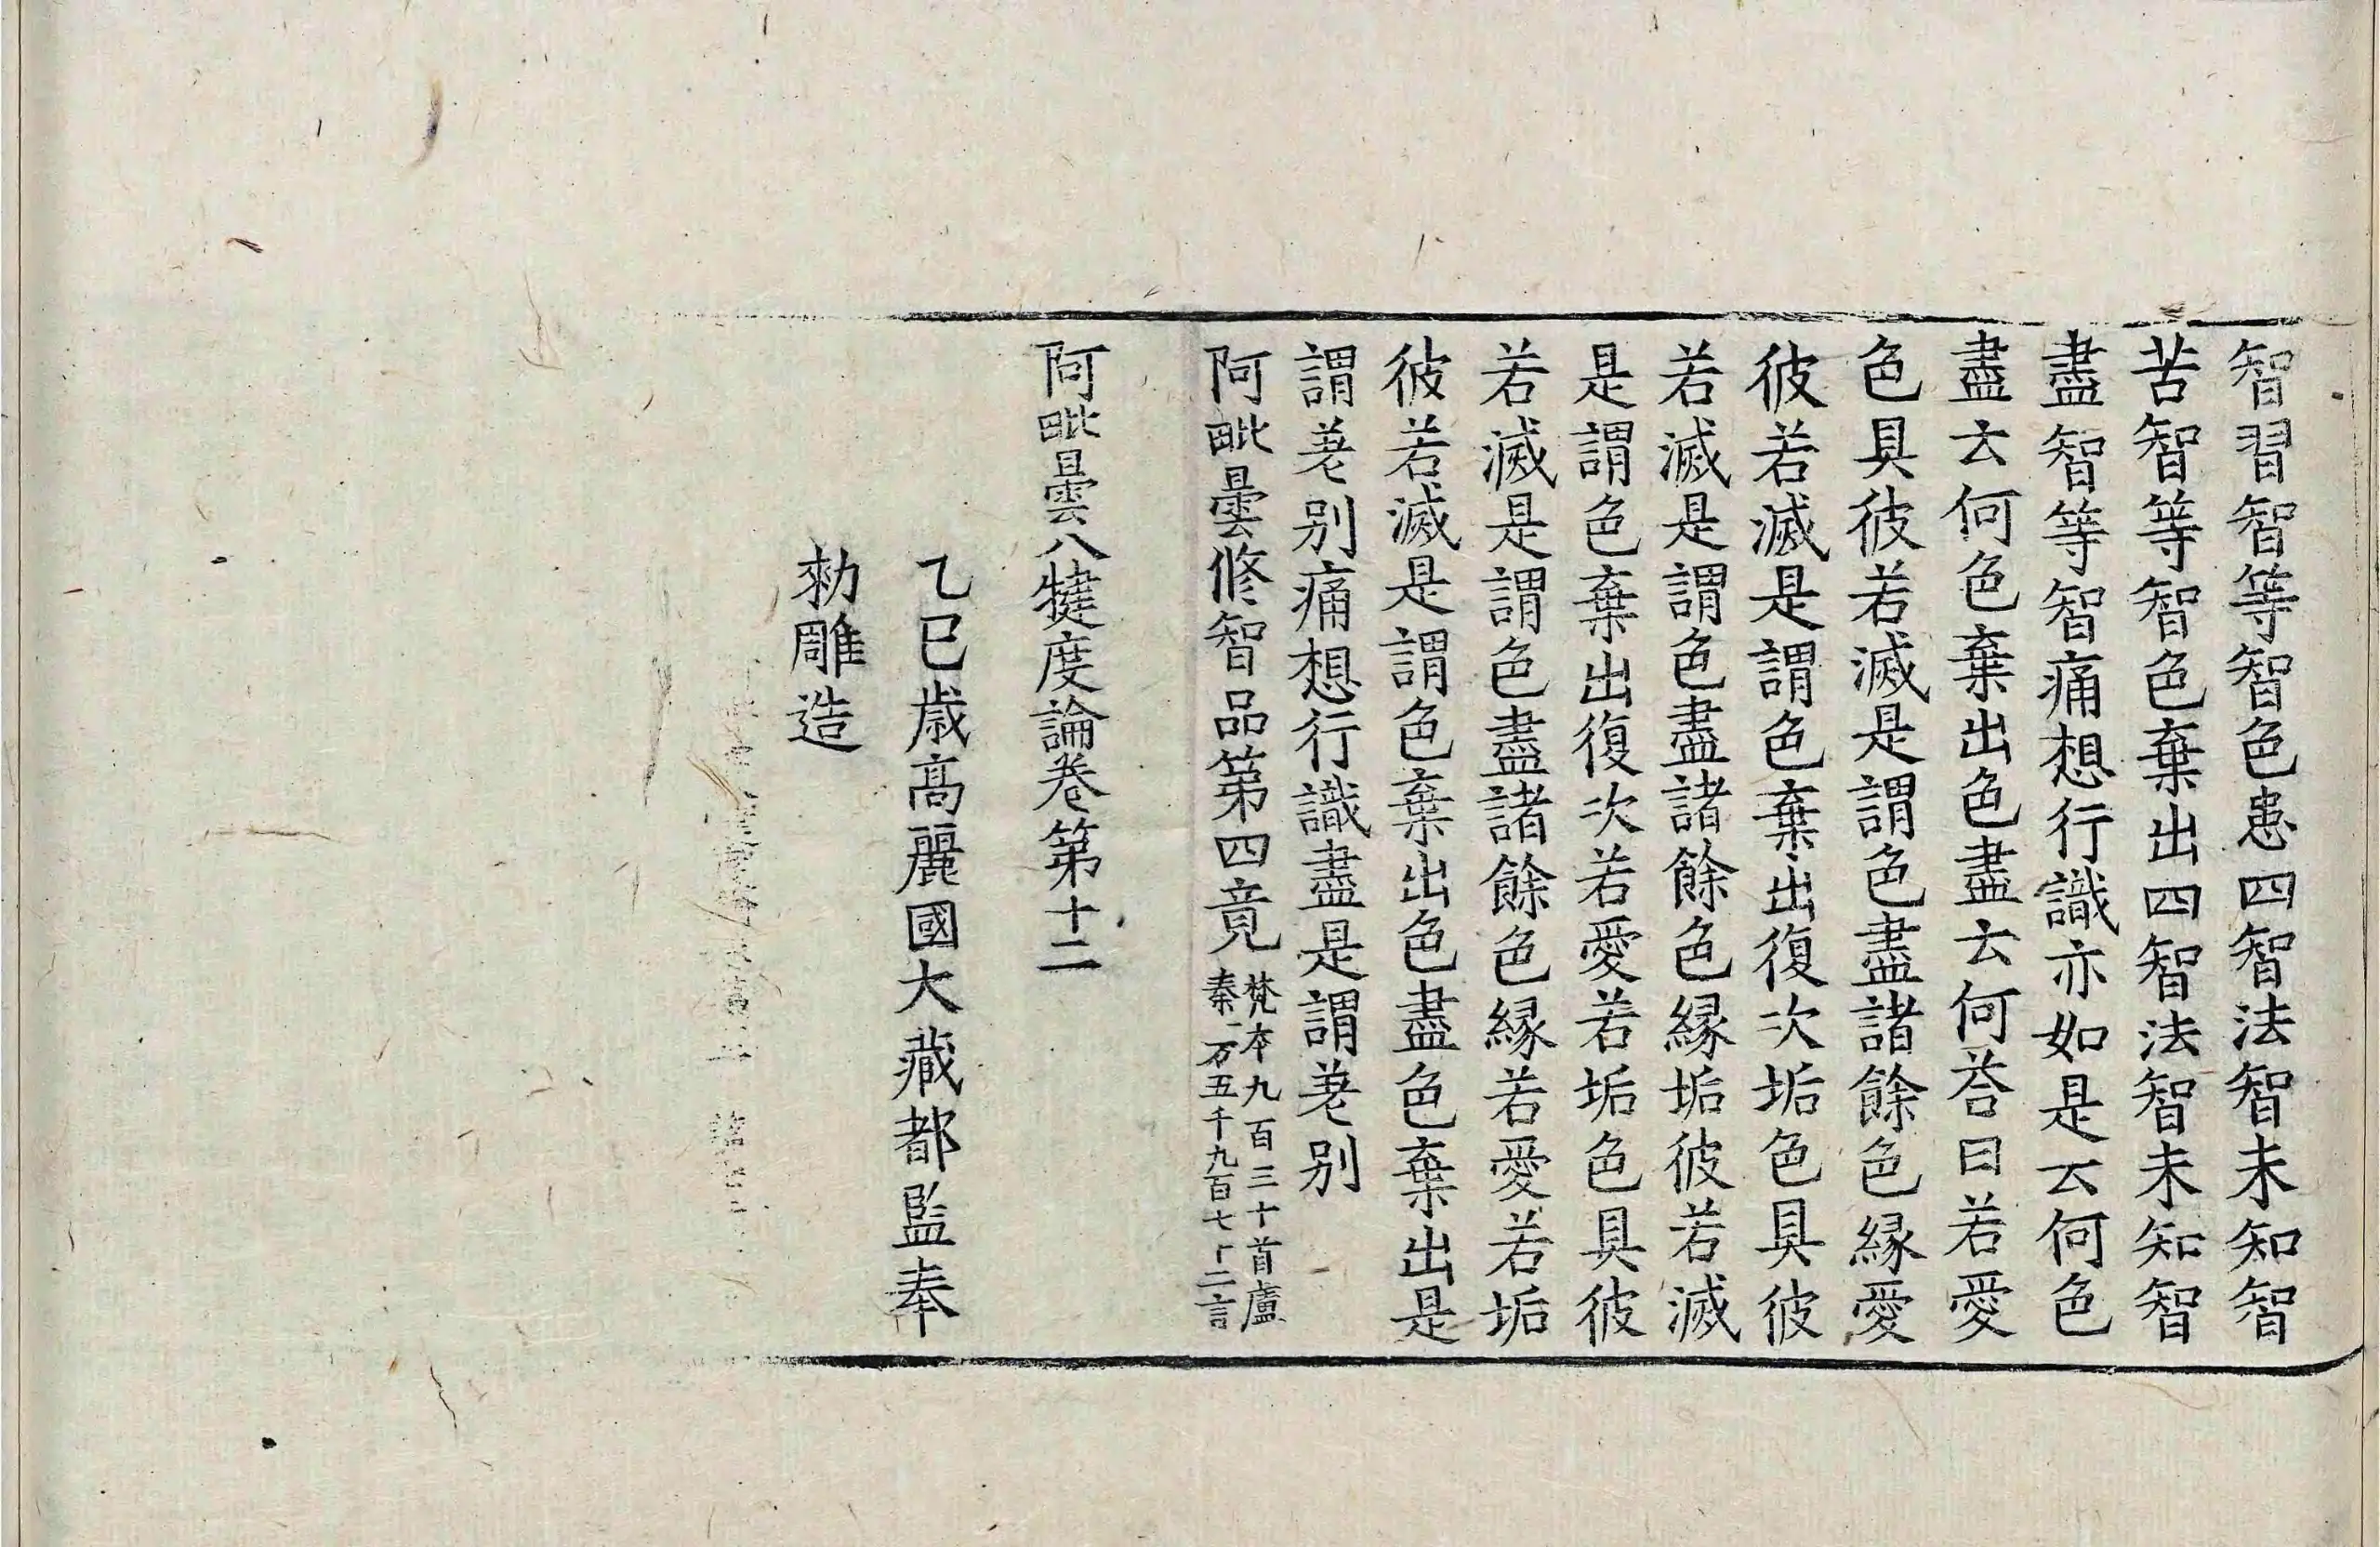 智習智等智色患四智法智未知智
苦智等智色棄出四智法智未知智
盡智等智痛想行識亦如是云何色
盡云何色棄出色盡云何荅曰若愛
色具彼若滅是謂色盡諸餘色縁愛
彼若滅是謂色棄出復次垢色具彼
若滅是謂色盡諸餘色縁垢彼若滅
是謂色棄出復次若愛若垢色具彼
若滅是謂色盡諸餘色縁若愛若垢
彼若滅是謂色棄出色盡色棄出是
謂差別痛想行識盡是謂差別
阿毗曇修智品第四竟
梵本九百三十首盧
秦一万五千九百七十二言
阿毗曇八犍度論卷第十二
乙巳歳高麗國大藏都監奉
勑雕造